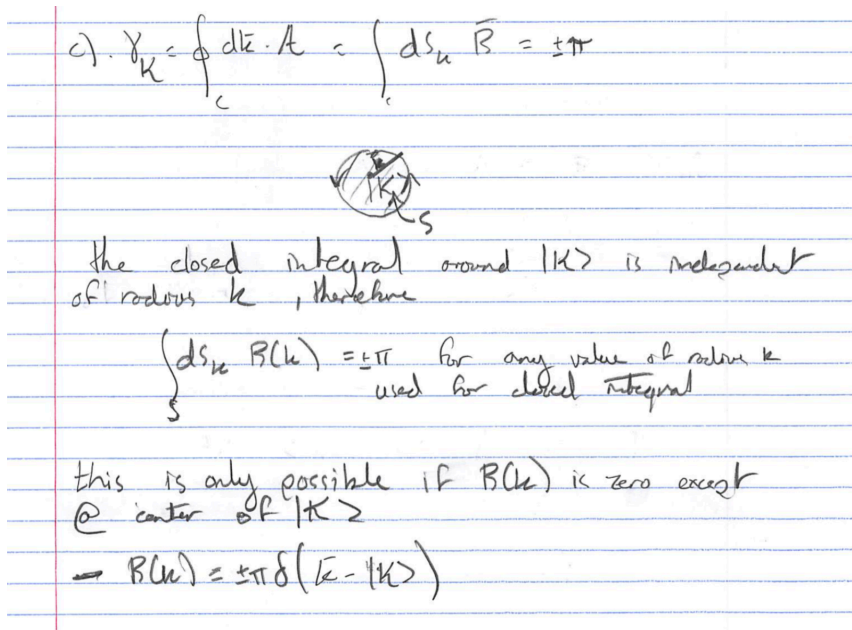 c). γ_K = ∮_C dk̄ · A = ∫ dS_k B̄ = ±π
k
|K>
S
the closed integral around |K> is independent
of radius k, therefore
∫_S dS_k B(k) = ±π for any value of radius k
used for closed integral
this is only possible if B(k) is zero except
@ center of |K>
- B(k) = ±π δ(k̄ - |K>)